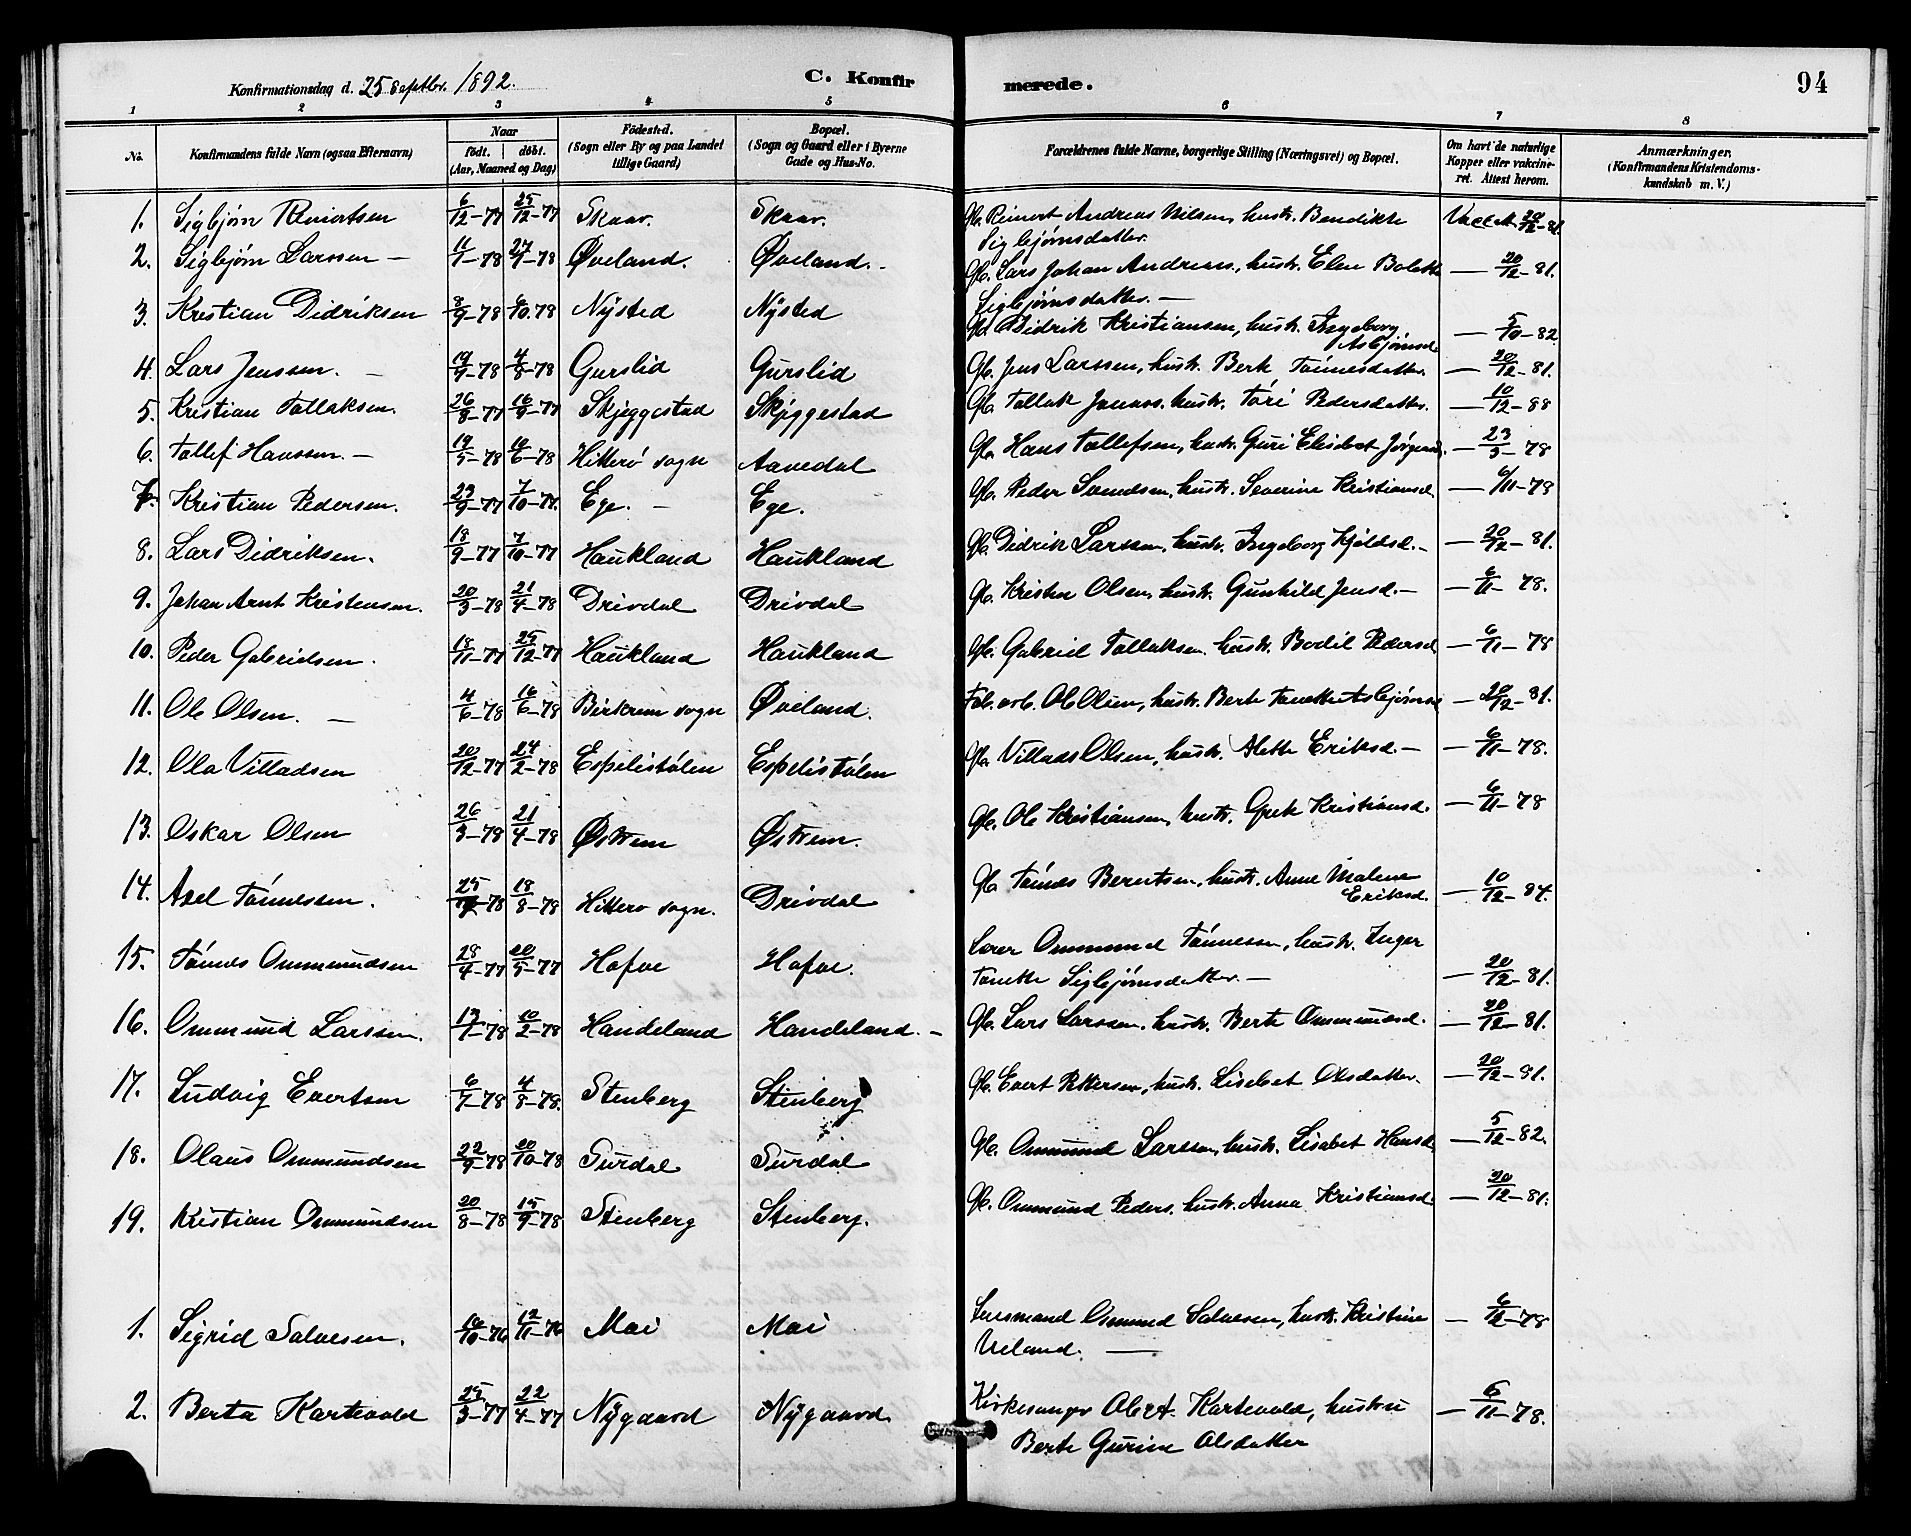 Konfirmationsdag d. 25 Septbr. 1892.
C. Konfirmerede.
94
1 2 3 4 5 6 7 8
No.
Konfirmandens fulde Navn (ogsaa Efternavn)
Naar
födt. döbt.
(Aar, Maaned og Dag)
Födested.
(Sogn eller By og paa Landet
tillige Gaard)
Bopæl.
(Sogn og Gaard eller i Byerne
Gade og Hus-No.
Forældrenes fulde Navne, borgerlige Stilling (Næringsvei) og Bopæl.
Om havt de naturlige
Kopper eller vakcine-
ret. Attest herom.
Anmærkninger.
(Konfirmandens Kristendoms-
kundskab m. V.)
1. Sigbjørn Reinertsen 6/12-77 25/12-77 Skaar. Skaar. Gb. Reinert Andreas Nilsen, hustr. Bendikte
Sigbjørnsdatter. Vacc. A. 20/12-81
2. Sigbjørn Larssen – 11/1-78 27/1-78 Øveland. Øveland. Gb. Lars Johan Andreas., hustr. Elen Bolette
Sigbjørnsdatter. — — 20/12-81.
3. Kristian Didriksen 8/9-78 6/10-78 Nÿsted Nÿsted Gb. Didrik Kristiansen, hustr. Ingeborg
Asbjørnsd. — 5/10-82
4. Lars Jenssen. – 19/7-78 4/8-78 Gurslid Gurslid Gb. Jens Larssen, hustr. Berte Tönnesdatter. — 20/12-81.
5. Kristian Tollaksen. 26/8-77 16/9-77 Skjeggestad Skjeggestad Gb. Tollak Jonass. hustr. Tóri Pedersdatter. — 10/12-88
6. Tollef Hanssen. – 19/5-78 10/6-78 Hitterö sogn Aavedal Gb. Hans Tollefsen, hustr. Guri Elisabet Jörgensd. — 23/5-78
7. Kristian Pedersen. 23/9-77 7/10-77. Ege. – Ege. Gb. Peder Svendsen, hustr. Severine Kristiansd. — 6/11-78
8. Lars Didriksen. 18/9-77 7/10-77 Haukland Haukland Gb. Didrik Larssen, hustr. Ingeborg Kjöldsd. – — 20/12-81.
9. Johan Arnt Kristensen. 20/3-78 21/4-78 Drivdal Drivdal Gb. Kristen Olsen, hustr. Gunhild Jensd. – — 6/11-78.
10. Peder Gabrielsen. 18/11-77 25/12-77 Haukland Haukland Gb. Gabriel Tollaksen. hustr. Bodil Pedersd — 6/11-78
11. Ole Olsen. – 4/6-78 16/6-78 Birkrem sogn Øveland. Fab. arb. Ole Olsen, hustr. Berte Tonette Asbjørnsd. — 20/12-81.
12. Ola Villadsen 20/12-77 24/2-78 Espelistölen Espelistölen Gb. Villads Olsen, hustr. Alette Eriksd. – — 6/11-78.
13. Oskar Olsen 26/3-78 21/4-78 Østrem Østrem. Gb. Ole Kristiansen, hustr. Grete Kristiansd. — 6/11-78
14. Axel Tönnessen. 25/7-78 18/8-78 Hitterö sogn. Drivdal Gb. Tönnes Berntsen, hustr. Anne Malene
Eriksd. — 10/12-84.
15. Tönnes Ommundsen 28/4-77 20/5-77 Hofve Hofve. Lærer Ommund Tönnessen, hustr. Inger
Tonette Sigbjørnsdatter. — — 20/12-81.
16. Ommund Larssen. 13/1-78 10/2-78 Handeland Handeland. – Gb. Lars Larssen, hustr. Berte Ommundsd. — 20/12-81.
17. Ludvig Evertsen 6/7-78 4/8-78. Stenberg Stenberg Gb. Evert Pettersen, hustr. Lisebet Olsdatter. — 20/12-81.
18. Olaus Ommundsen 22/9-78 20/10-78 Surdal Surdal Gb. Ommund Larssen, hustr. Lisabet Hansd. — 5/12-82.
19. Kristian Ommundsen 20/8-78 15/9-78 Stenberg Stenberg. Gb. Ommund Peders. hustr. Anna Kristiansd. — 20/12-81.
1. Sigrid Salvesen. 16/10-76 12/11-76 Moi Moi Lensmand Omund Salvesen, hustr. Kristine
Ueland. — — 6/12-78
2. Berta Kartevold 25/3-77 22/4-77 Nÿgaard Nÿgaard. Kirkesanger Ole A. Kartevold, hustru
Berte Gurine Olsdatter — 6/11-78.